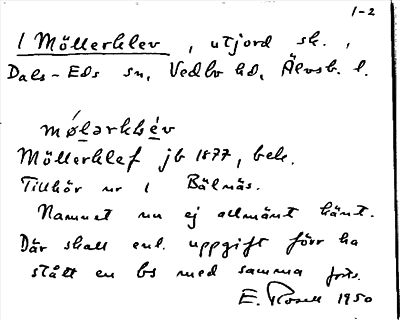 1-2
1 Möllerklev, utjord sk.,
Dals-Eds sn, Vedbo hd, Älvsb. l.
mǿlərkle̱v
Möllerklef jb 1877, bek.
Tillhör nr 1 Bälnäs.
Namnet nu ej allmänt känt.
Där skall enl. uppgift förr ha
stått en bs med samma
E. Rosell 1950